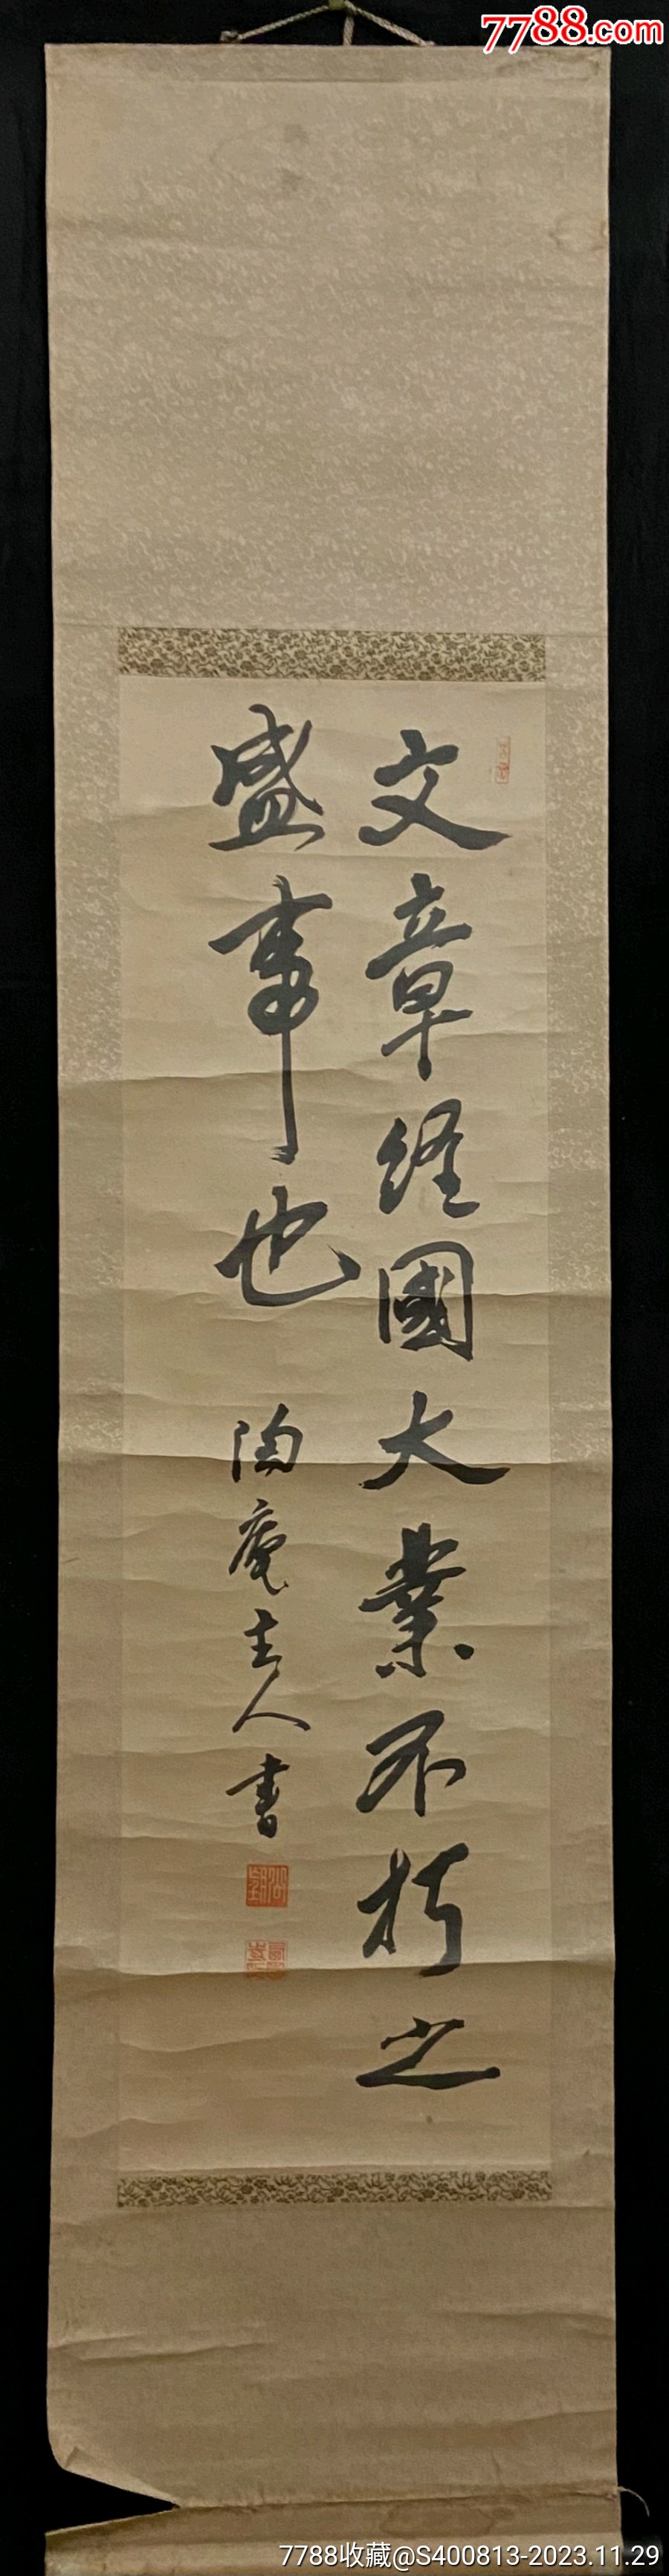 7788.com
文章经國大業不朽之
盛事也
陶庵主人書
7788收藏@S400813-2023.11.29